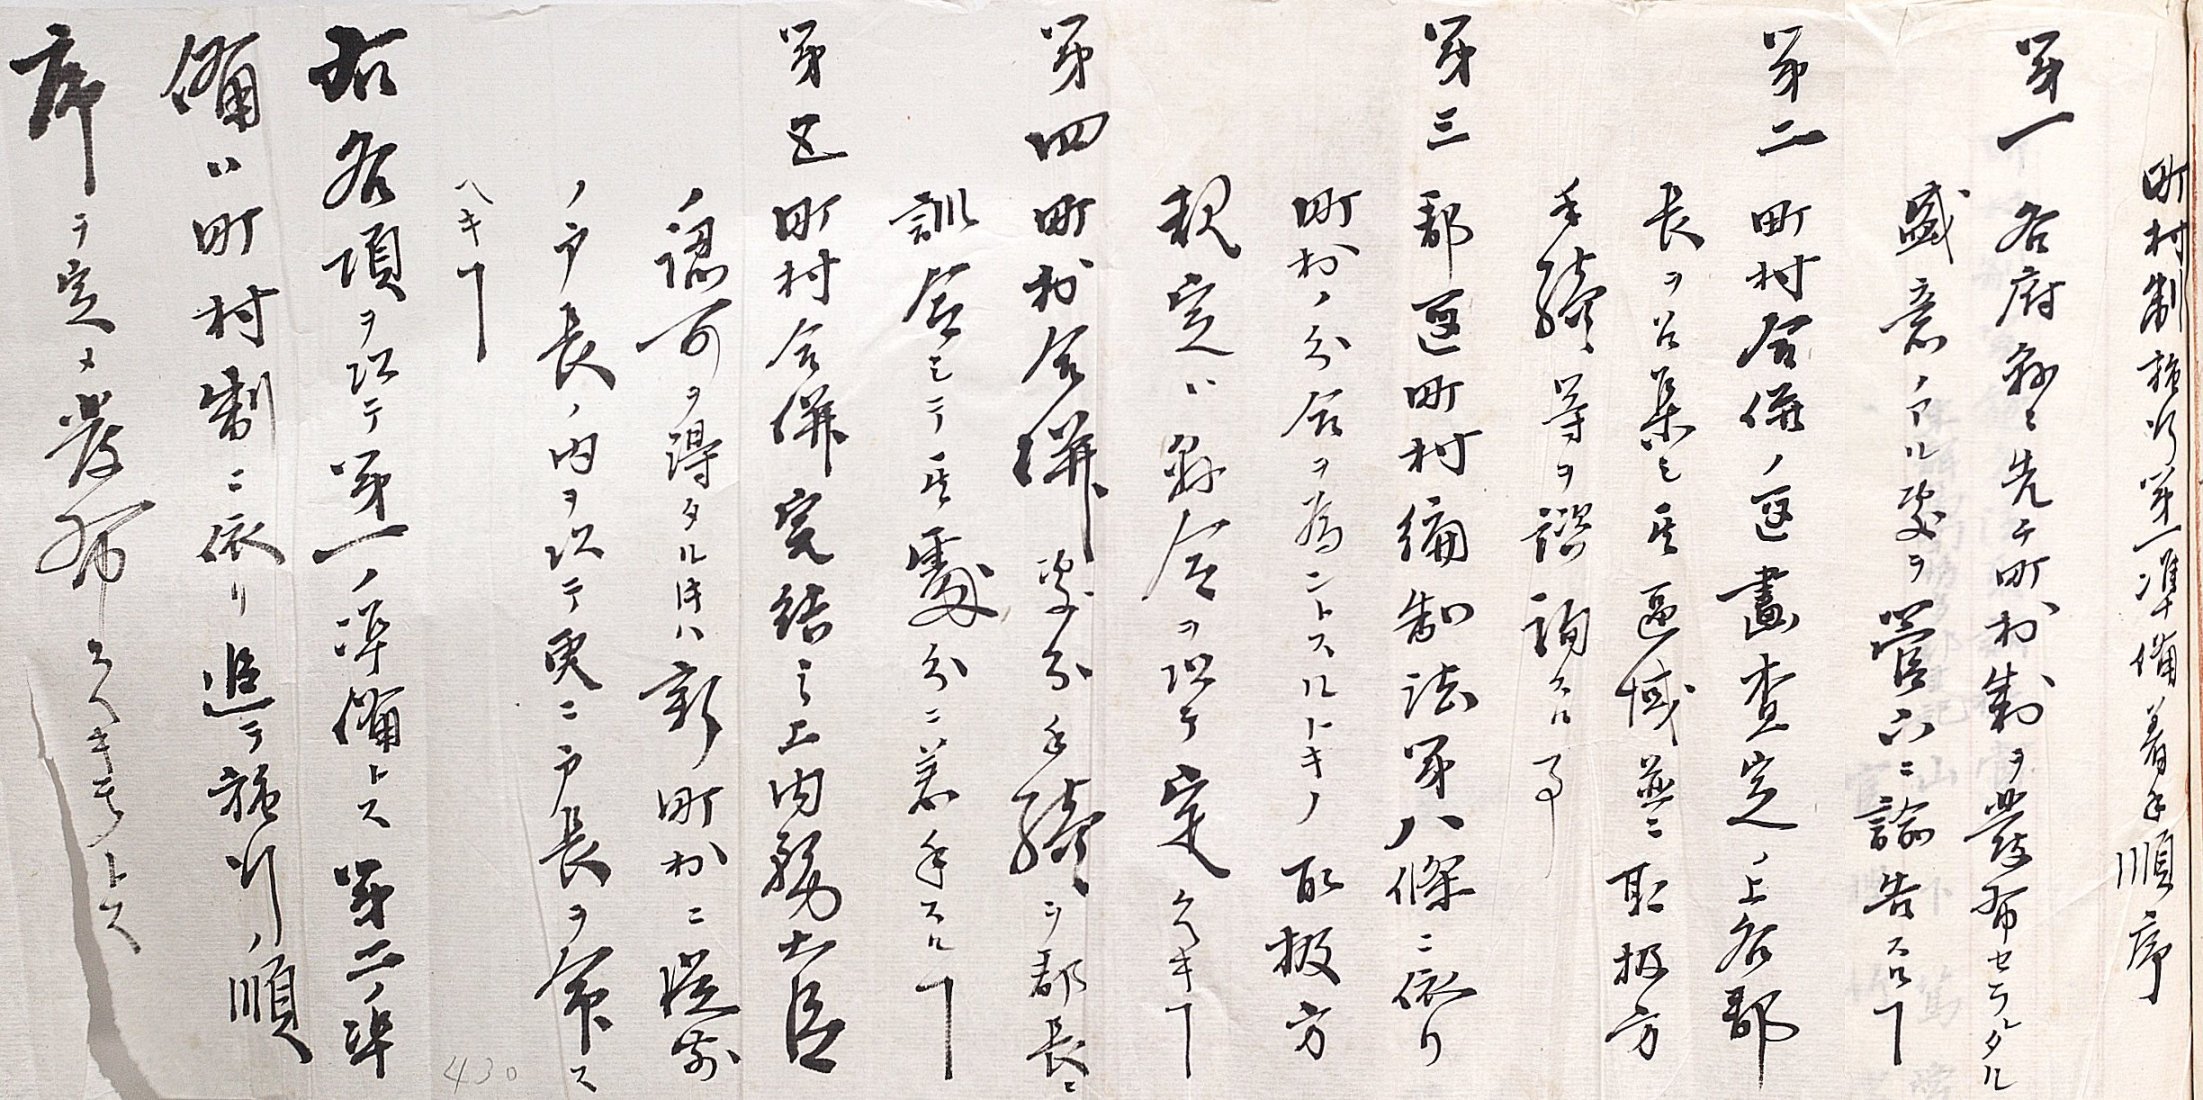 町村制施行第一準備着手順序
第一 各府縣ニ先チ町村制ヲ發布セラルタル
盛意ノアル處ヲ管下ニ諭告スルヿ
第二 町村合併ノ區畫査定ノ上各郡
長ヲ召集シ其區域並ニ取扱方
手續等ヲ諮詢スル事
第三 郡區町村編制法第八條ニ依リ
町村ノ分合ヲ為ントスルトキノ取扱方
規定ハ縣令ヲ以テ定ムヘキヿ
第四 町村合併處分手續ヲ郡長ニ
訓令シテ其處分ニ着手スルヿ
第五 町村合併完結之上内務大臣
ノ認可ヲ得タル時ハ新町村ニ從前
ノ戸長ノ内ヲ以テ更ニ戸長ヲ命ス
ヘキヿ
右各項ヲ以テ第一ノ準備トス第二ノ準
備ハ町村制ニ依リ追テ施行ノ順
序ヲ定メ發布スヘキモノトス
430